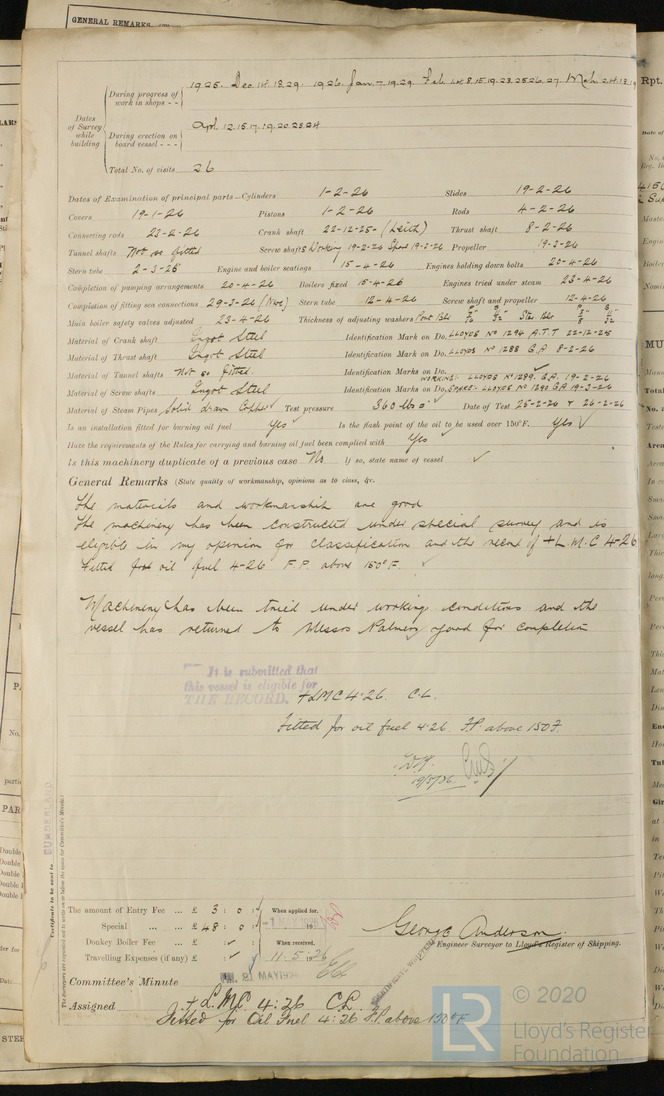 GENERAL REMARKS
Rpt.
Dates of Survey while building
During progress of work in shops - -
1925. Dec. 14. 18. 29. 1926. Jan. 7. 19. 29. Feb. 1. 4. 8. 15. 19. 23. 25. 26. 27. Mch. 2. 4.
During erection on board vessel - - -
Apl. 12. 15. 17. 19. 20. 23. 24
Total No. of visits 26
Dates of Examination of principal parts—Cylinders 1-2-26 Slides 19-2-26
Covers 19-1-26 Pistons 1-2-26 Rods 4-2-26
Connecting rods 23-2-26 Crank shaft 22-12-25- (Leith) Thrust shaft 8-2-26
Tunnel shafts Not so fitted Screw shafts Working 19-2-26 Spare 19-3-26 Propeller 19-3-26
Stern tube 2-3-26 Engine and boiler seatings 15-4-26 Engines holding down bolts 20-4-26
Completion of pumping arrangements 20-4-26 Boilers fixed 15-4-26 Engines tried under steam 23-4-26
Completion of fitting sea connections 29-3-26 Stern tube 12-4-26 Screw shaft and propeller 12-4-26
Main boiler safety valves adjusted 23-4-26 Thickness of adjusting washers
Material of Crank shaft Ingot Steel Identification Mark on Do. LLOYDS No 1294 A.T.T 22-12-25
Material of Thrust shaft Ingot Steel Identification Mark on Do. LLOYDS No 1288 G.A 8-2-26
Material of Tunnel shafts Not so fitted. Identification Marks on Do.
WORKING:- LLOYDS No 1289. G.A. 19-2-26
Material of Screw shafts Ingot Steel Identification Marks on Do. SPARE:- LLOYDS No 1290 G.A 19-3-26
Material of Steam Pipes Solid drawn Copper Test pressure 360 lbs Date of Test 25-2-26 & 26-2-26
Is an installation fitted for burning oil fuel Yes Is the flash point of the oil to be used over 150°F. Yes ✓
Have the requirements of the Rules for carrying and burning oil fuel been complied with Yes
Is this machinery duplicate of a previous case No If so, state name of vessel ✓
General Remarks (State quality of workmanship, opinions as to class, &c.
The materials and workmanship are good
The machinery has been constructed under special survey and is
eligible in my opinion for classification and the record of +L.M.C 4-26
Fitted for oil fuel 4-26 F.P. above 150°F. ✓
Machinery has been tried under working conditions and the
vessel has returned to Messrs Palmers yard for completion
It is submitted that
this vessel is eligible for
THE RECORD. + LMC 4.26. C.L.
Fitted for oil fuel 4.26. F.P. above 150 F.
SUNDERLAND
Certificate to be sent to
(The Surveyors are requested not to write on or below the space for Committee's Minute.)
The amount of Entry Fee ... £ 3 : 0 : When applied for,
Special ... ... £ 48 : 0 :
Donkey Boiler Fee ... £ ✓ When received,
Travelling Expenses (if any) £ ✓ 11.5.26
George Anderson
Engineer Surveyor to Lloyd's Register of Shipping.
Committee's Minute
Assigned + L.M.C. 4.26 C.L.
Fitted for Oil Fuel 4.26 F.P. above 150°F
LR
© 2020
Lloyd's Register
Foundation